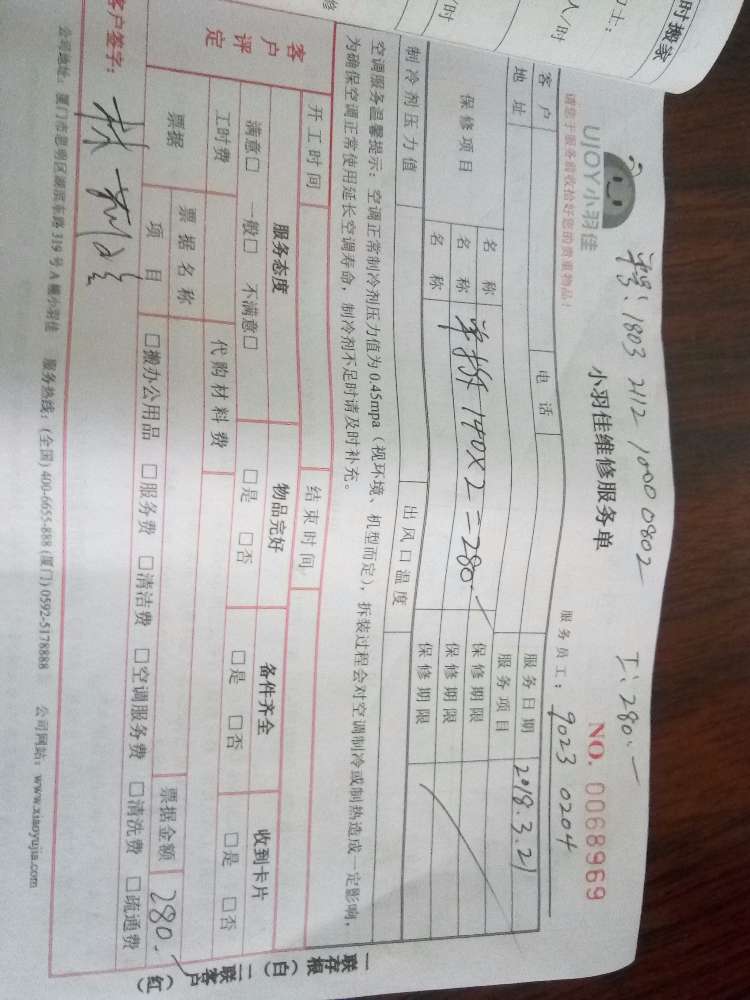 时搬家
人/时
/时
单号：1803 2112 1000 0802
工：280.—
UJOY小羽佳
请您于服务前收拾好您的贵重物品！
小羽佳维修服务单
NO. 0068969
服务员工：9023 0204
客户
地址
电话
服务日期 2018.3.21
服务项目
保修项目
名称
保修期限
名称 单拆 140×2=280.—
保修期限
名称
保修期限
制冷剂压力值
出风口温度
空调服务温馨提示：空调正常制冷剂压力值为0.45mpa（视环境、机型而定），拆装过程会对空调制冷或制热造成一定影响，
为确保空调正常使用延长空调寿命，制冷剂不足时请及时补充。
开工时间
结束时间
客户评定
服务态度
物品完好
备件齐全
收到卡片
满意□ 一般□ 不满意□
□是 □否
□是 □否
□是 □否
工时费
代购材料费
票据
票据名称
票据金额 280.—
项目
□搬办公用品 □服务费 □清洁费 □空调服务费 □清洗费 □疏通费
客户签字：
公司地址：厦门市思明区湖滨东路319号A幢小羽佳 服务热线：(全国) 400-6655-888 (厦门) 0592-5178888 公司网站：www.xiaoyujia.com
一联存根（白） 二联客户（红）